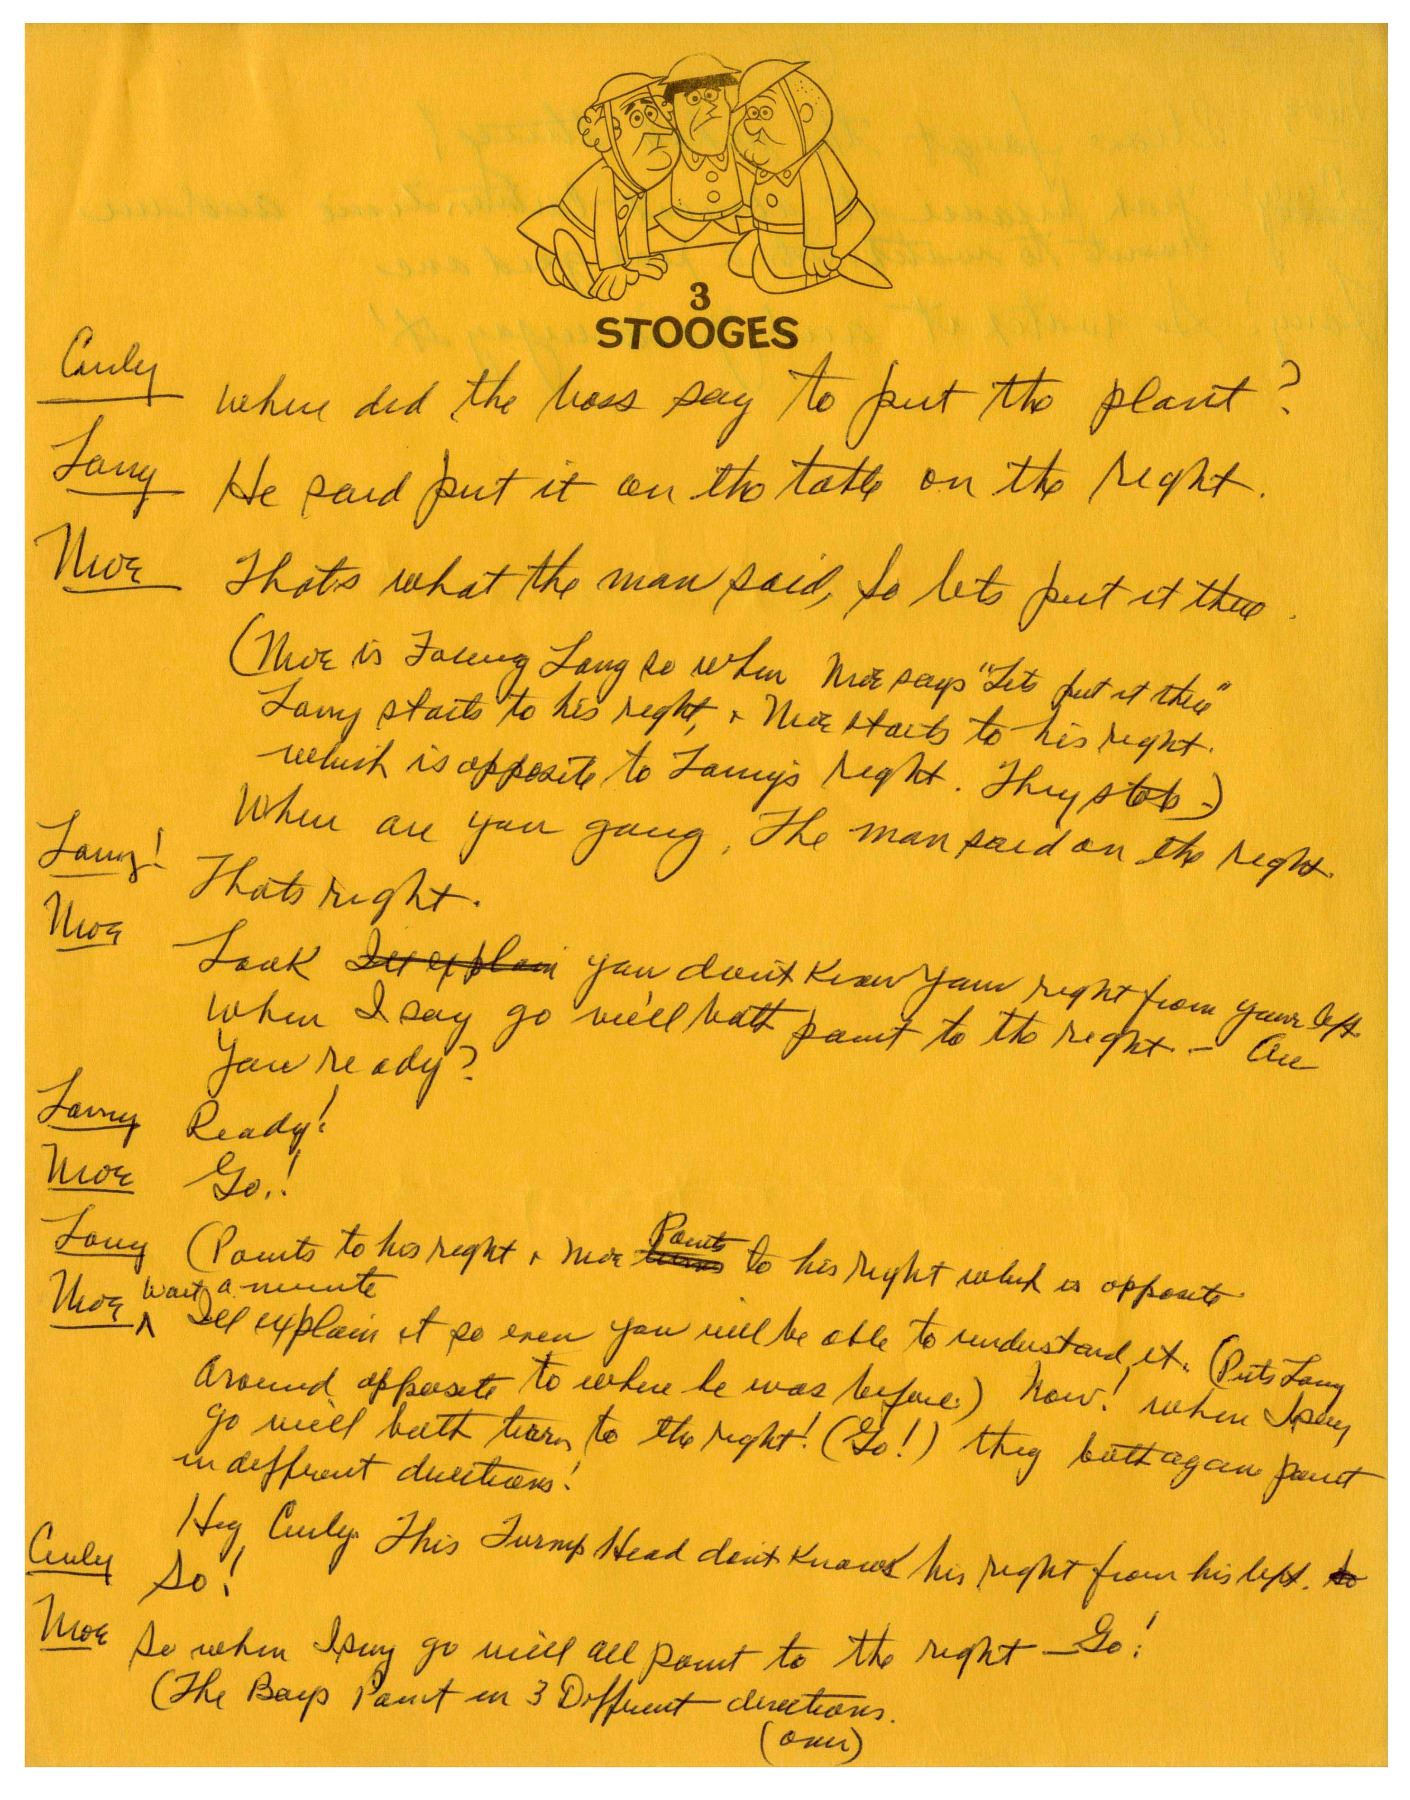 3
STOOGES
Curly Where did the boss say to put the plant?
Larry He said put it on the table on the right.
Moe Thats what the man said, so lets put it there.
(Moe is Facing Larry so when Moe says "Lets put it there"
Larry starts to his right, + Moe starts to his right.
which is opposite to Larrys right. They stop -)
Where are you going, The man said on the right.
Larry! Thats right.
Moe Look Ill explain you dont know your right from your left
When I say go we'll both point to the right - Are
you ready?
Larry Ready!
Moe Go.!
Larry (Points to his right + Moe turns Points to his right which is opposite
Moe Wait a minute
Ill explain it so even you will be able to understand it. (Puts Larry
around opposite to where he was before.) Now! when I say
go we'll both turn to the right! (Go!) they both again point
in different directions!
Hey Curly. This Turnip Head dont knows his right from his left. so
Curly So!
Moe So when I say go we'll all point to the right — Go!
(The Boys Point in 3 Different directions.
(over)